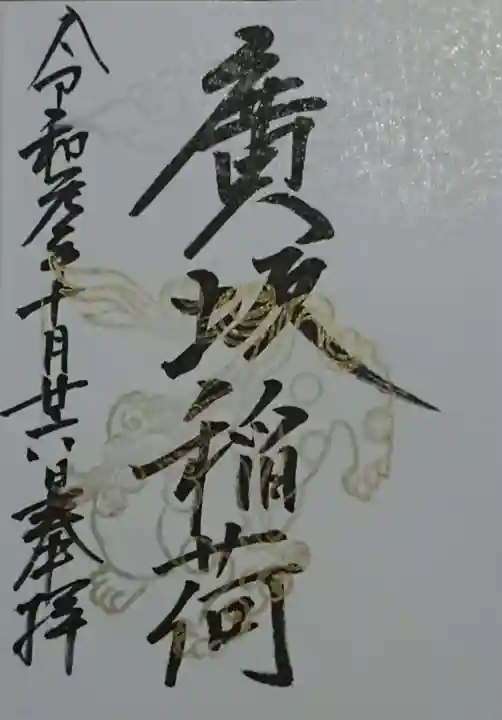 廣坂稲荷
令和十月廿六日奉拝